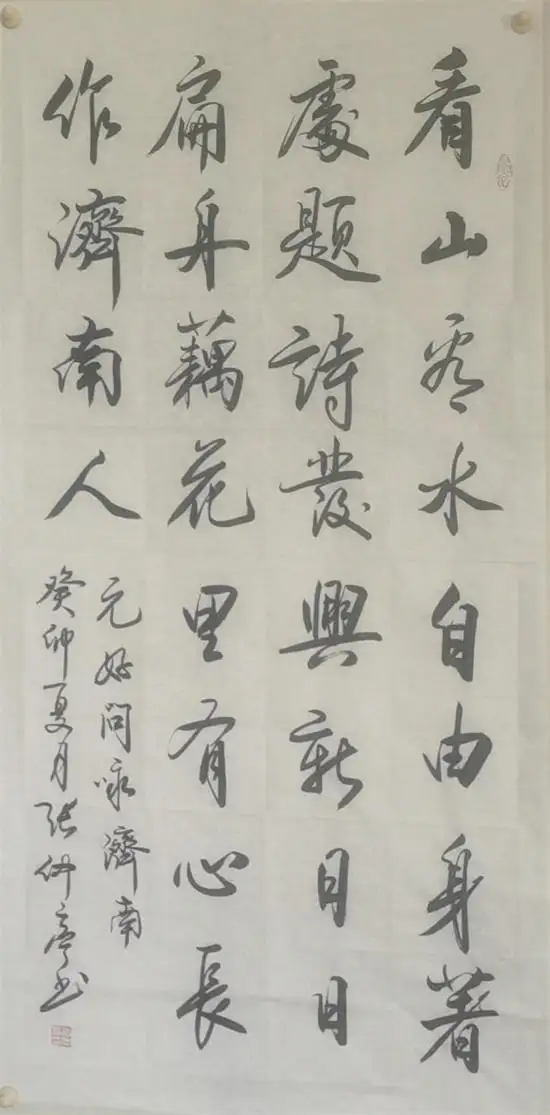 看山看水自由身著
處題詩發興新日日
扁舟藕花里有心長
作濟南人
元好問咏濟南
癸卯夏月张仲亭书